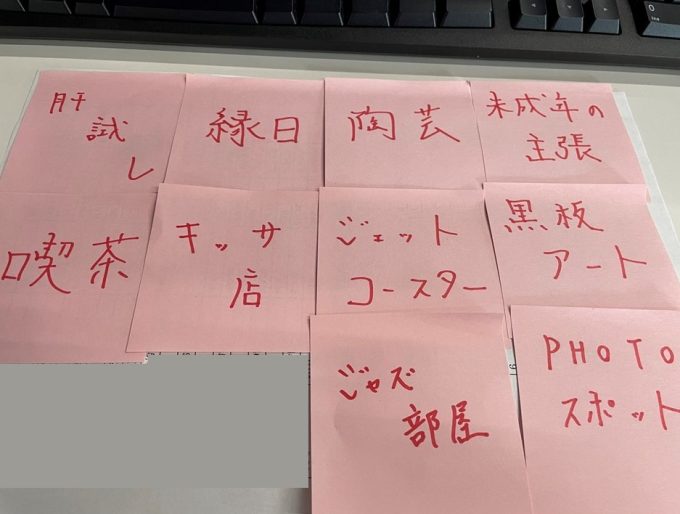 肝
試
し
縁日
陶芸
未成年の
主張
喫茶
キッサ
店
ジェット
コースター
黒板
アート
ジャズ
部屋
PHOTO
スポット